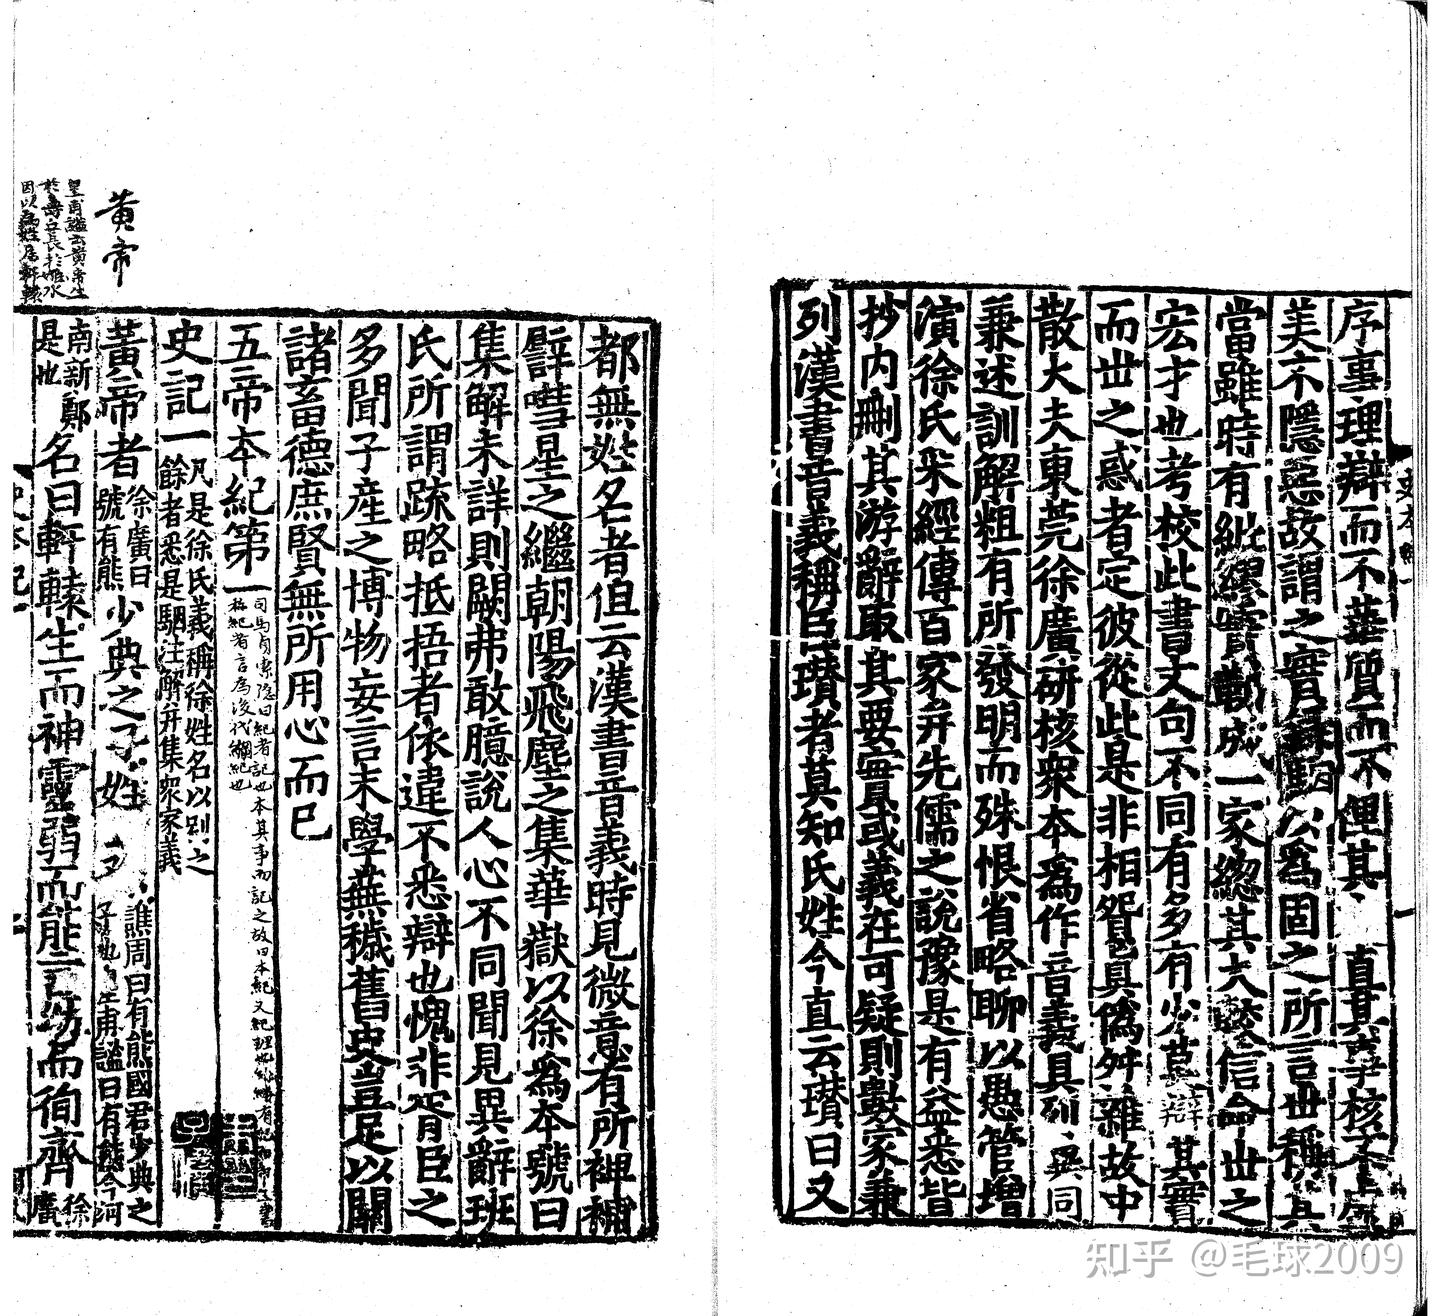 序事理辯而不華質而不俚其
直其事核不
美不隱惡故謂之實錄
以爲固之所言世稱其
當雖時有紕繆實勒成一家總其大
信命世之
宏才也考校此書文句不同有多有少莫辯其實
而世之惑者定彼從此是非相貿真僞舛雜故中
散大夫東莞徐廣研核衆本爲作音義具列異同
兼述訓解粗有所發明而殊恨省略聊以愚管增
演徐氏采經傳百家并先儒之說豫是有益悉皆
抄内刪其游辭取其要實或義在可疑則數家兼
列漢書音義稱臣瓚者莫知氏姓今直云瓚曰又
都無姓名者但云漢書音義時見微意有所裨補
譬嘒星之繼朝陽飛塵之集華嶽以徐爲本號曰
集解未詳則闕弗敢臆說人心不同聞見異辭班
氏所謂疏略抵捂者依違不悉辯也愧非胥臣之
多聞子產之博物妄言末學蕪穢舊史豈足以關
諸畜德庶賢無所用心而已
五帝本紀第一
司馬貞索隱曰紀者記也本其事而記之故曰本紀又紀理也絲縷有紀
稱紀者言爲後代綱紀也
史記一
凡是徐氏義稱徐姓名以別之
餘者悉是駰注解并集衆家義
黃帝
皇甫謐云黃帝生
於壽丘長於姬水
因以爲姓居軒轅
黃帝者
徐廣曰
號有熊
少典之子姓
譙周曰有熊國君少典之
子也皇甫謐曰有熊今河
南新鄭
是也
名曰軒轅生而神靈弱而能言幼而徇齊
徐
廣
史本紀一
知乎 @毛球2009